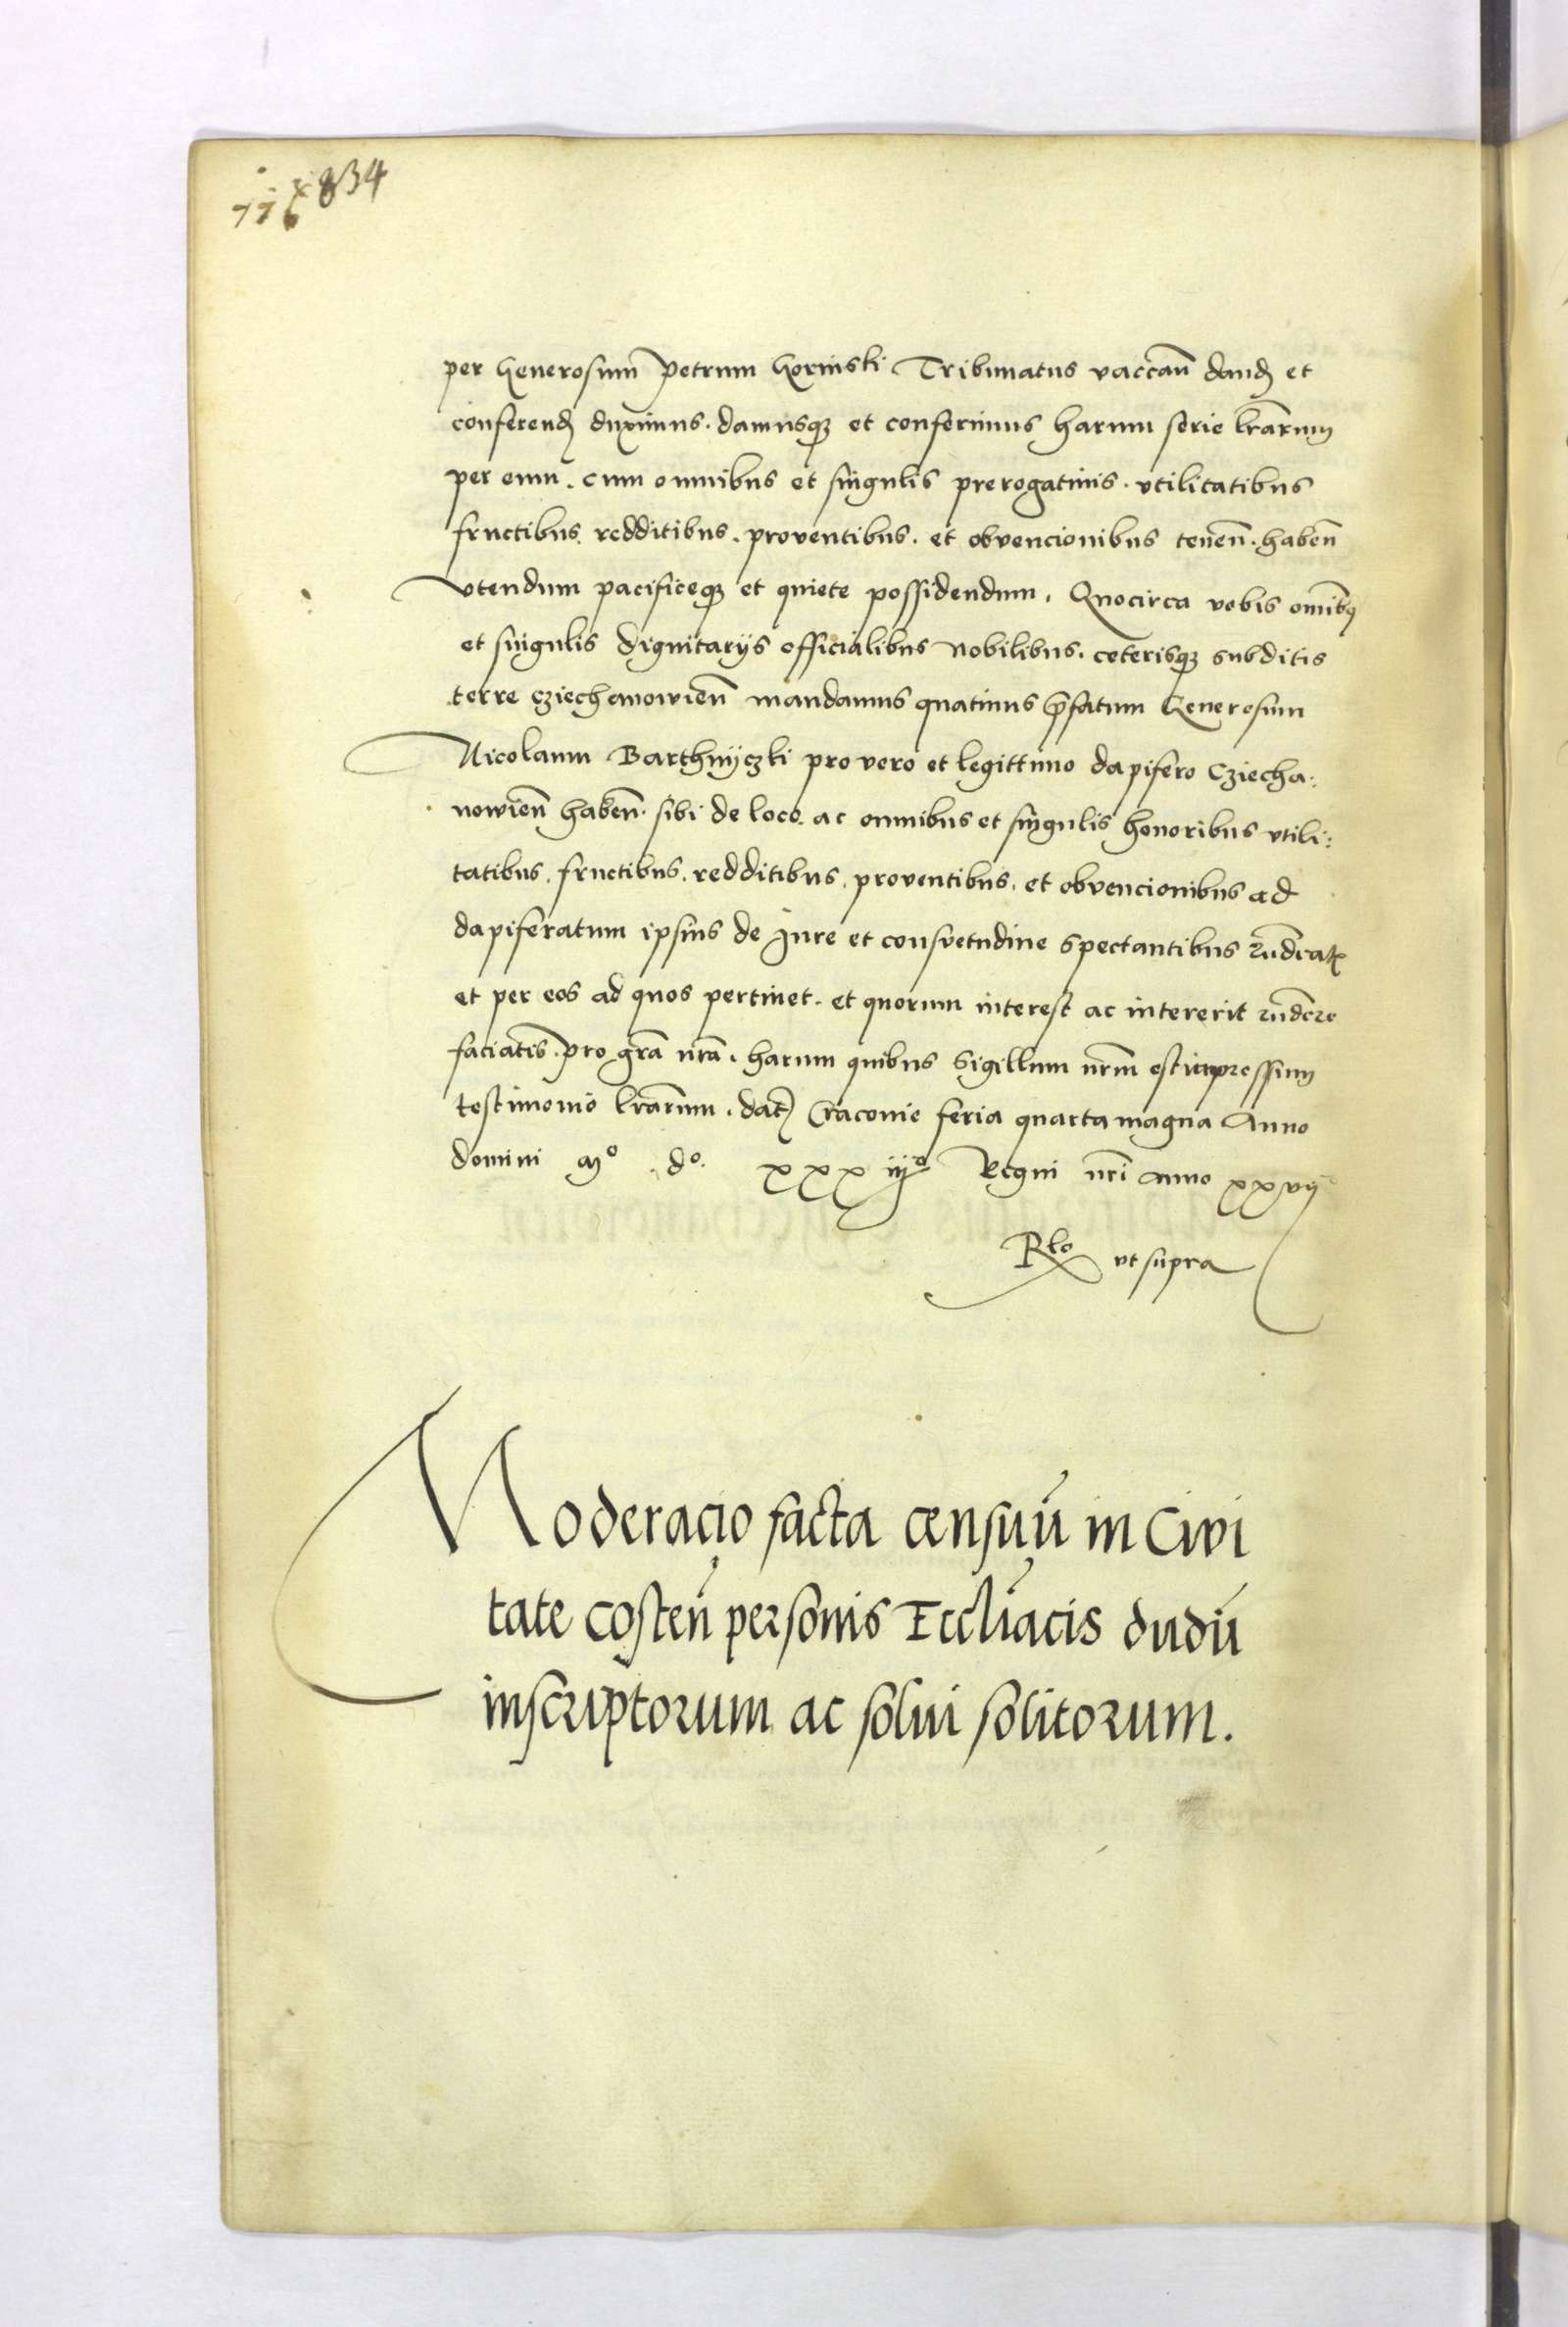 834
per Generosum Petrum Gorinski Tribunatus vaccan̄ dand̄ et
conferend̄ duximus. damusq̨ et conferimus harum serie lrārum
per eum. cum omnibus et singulis prerogatiuis. vtilitatibus
fructibus. redditibus. proventibus. et obvencionibus tenen̄. haben̄
vtendum pacificeq̨ et quiete possidendum. Quocirca vobis omībꝰ
et singulis dignitarijs officialibus nobilibus. ceterisq̨ subditis
terre cziechanowien̄ mandamus quatinus p̄fatum Generosum
Nicolaum Barthnyczki pro vero et legittimo dapifero Cziecha:
nowien̄ haben̄. sibi de loco. ac omnibus et singulis honoribus vtili:
tatibus. fructibus. redditibus. proventibus. et obvencionibus ad
dapiferatum ipsius de Jure et consvetudine spectantibus rn̄deatꝭ
et per eos ad quos pertinet. et quorum interest ac intererit rn̄dere
faciatis. pro grā nrā. harum quibus Sigillum nrm̄ est impressum
testimonio lrārum. dat̄ Cracouie feria quarta magna Anno
domini mº. dº. xxxiijº Regni nrī anno xxvij
Rlo vt supra
Moderacio facta censuū in Civi
tate Costen̄ personis Eccliācis dudū
inscriptorum ac solui solitorum.